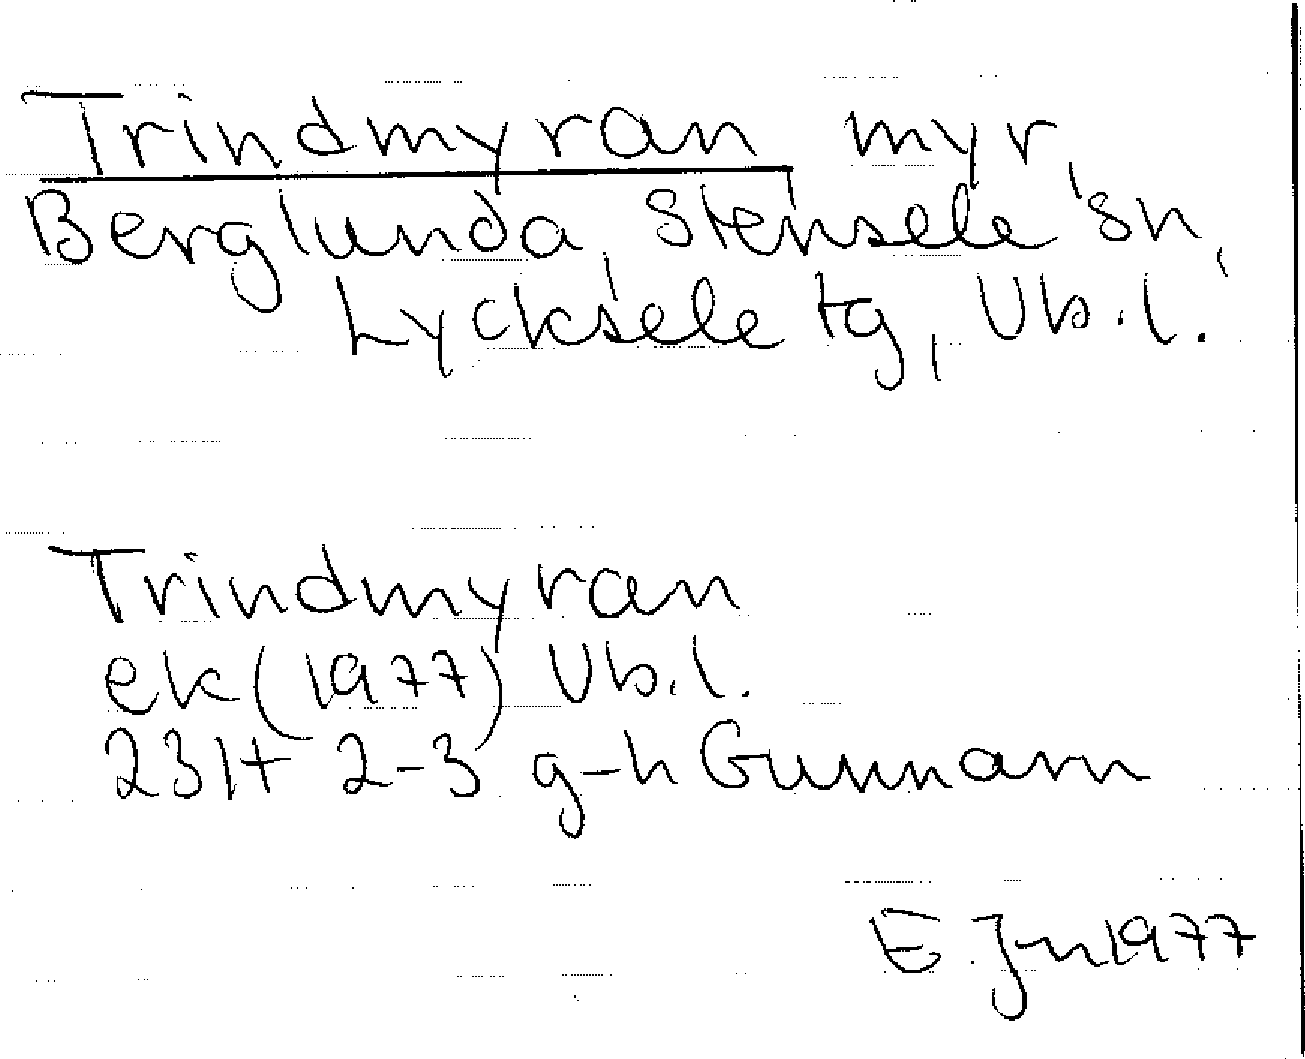 Trindmyran myr,
Berglunda, Stensele sn,
Lycksele tg, Vb.l.
Trindmyran
ek (1977) Vb.l.
23H 2-3 g-h Gunnarn
E. Jn 1977